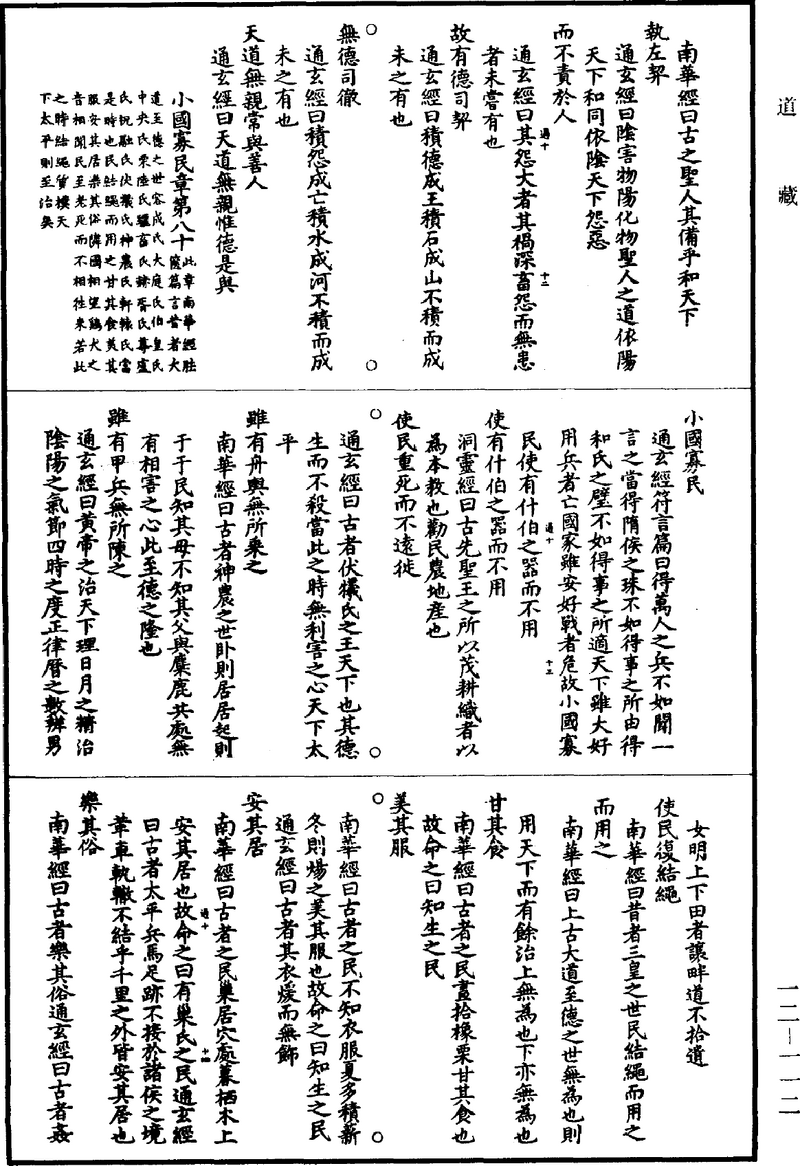 道藏
南華經曰古之聖人其備乎和天下
執左契
通玄經曰陰害物陽化物聖人之道依陽
天下和同依陰天下怨惡
而不責於人
通玄經曰其怨大者其禍深畜怨而無患
者未嘗有也
故有德司契
通玄經曰積德成王積石成山不積而成
未之有也
○
○
無德司徹
通玄經曰積怨成亡積水成河不積而成
未之有也
天道無親常與善人
通玄經曰天道無親惟德是與
小國寡民章第八十
此章南華經胠
篋篇言昔者大
道至德之世容成氏大庭氏伯皇氏
中央氏栗陸氏驪畜氏赫胥氏尊盧
氏祝融氏伏犧氏神農氏軒轅氏當
是時也民結繩而用之甘其食美其
服安其居樂其俗隣國相望鷄犬之
音相聞民至老死而不相往來若此
之時結繩質樸天
下太平則至治矣
小國寡民
通玄經符言篇曰得萬人之兵不如聞一
言之當得隋侯之珠不如得事之所由得
和氏之璧不如得事之所適天下雖大好
用兵者亡國家雖安好戰者危故小國寡
民使有什伯之器而不用
使有什伯之器而不用
洞靈經曰古先聖王之所以茂耕織者以
為本教也勸民農地產也
使民重死而不遠徙
○
○
通玄經曰古者伏犧氏之王天下也其德
生而不殺當此之時無利害之心天下太
平
雖有舟輿無所乘之
南華經曰古者神農之世卧則居居起則
于于民知其母不知其父與麋鹿共處無
有相害之心此至德之隆也
雖有甲兵無所陳之
通玄經曰黃帝之治天下理日月之精治
陰陽之氣節四時之度正律曆之數辨男
女明上下田者讓畔道不拾遺
使民復結繩
南華經曰昔者三皇之世民結繩而用之
而用之
南華經曰上古大道至德之世無為也則
用天下而有餘治上無為也下亦無為也
甘其食
南華經曰古者之民晝拾橡栗甘其食也
故命之曰知生之民
美其服
○
○
南華經曰古者之民不知衣服夏多積薪
冬則煬之美其服也故命之曰知生之民
通玄經曰古者其衣煖而無飾
安其居
南華經曰古者之民巢居穴處暮栖木上
安其居也故命之曰有巢氏之民通玄經
曰古者太平兵馬足跡不接於諸侯之境
葦車軌轍不結乎千里之外皆安其居也
樂其俗
南華經曰古者樂其俗通玄經曰古者姦
一二—一一二